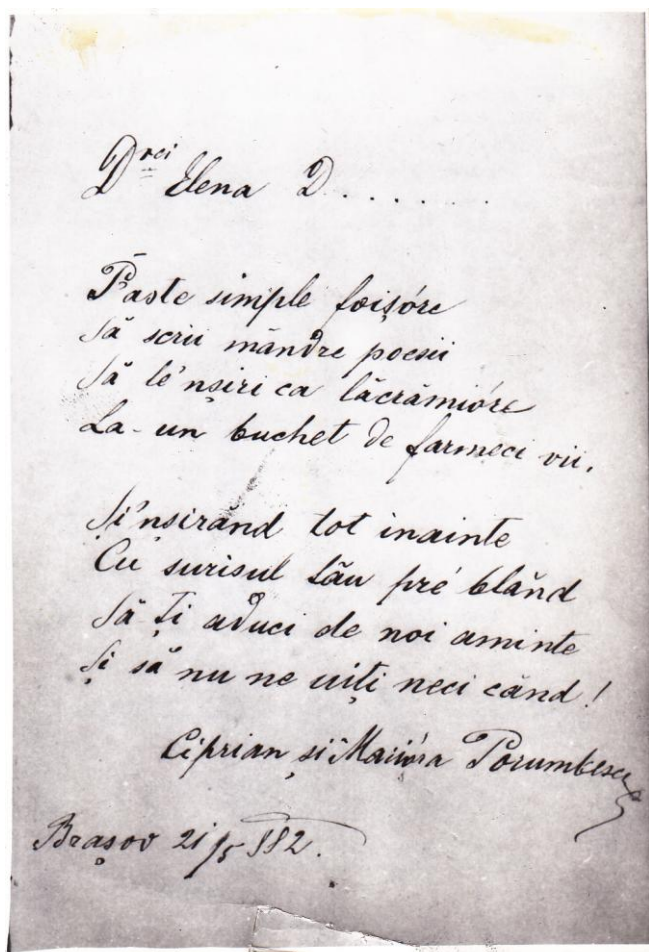 Drei Elena D . . . . . . .
Păste simple foișóre
Să scrii mândre poesii
Să le'nșiri ca lăcrămióre
La-un buchet de farmeci vii.
Și'nșirând tot inainte
Cu surisul tău pré blând
Să-Ți aduci de noi aminte
Și să nu ne uiți neci când!
Ciprian și Marióra Porumbescu
Brașov 21/5 882.